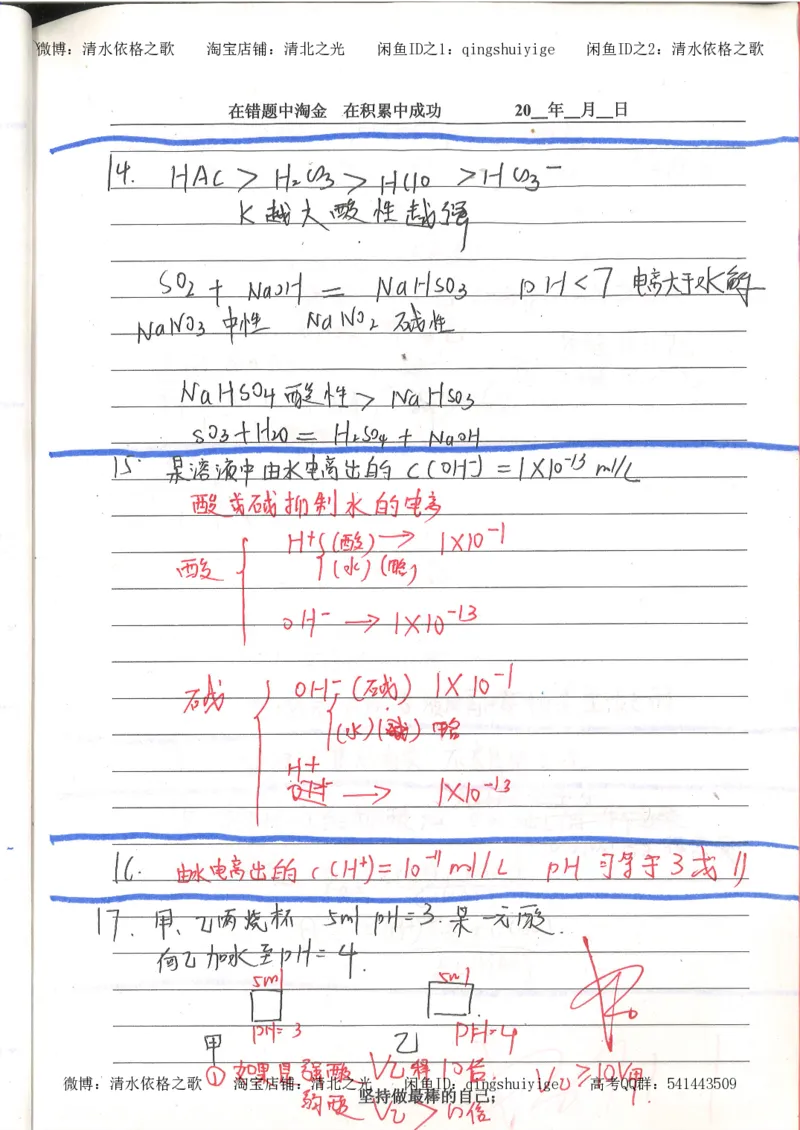 微博：清水依格之歌 淘宝店铺：清北之光 闲鱼ID之1：qingshuiyige 闲鱼ID之2：清水依格之歌
在错题中淘金 在积累中成功 20__年__月__日
14. HAC > H₂CO₃ > HClO > HCO₃⁻
K越大酸性越强
SO₂ + NaOH = NaHSO₃ pH<7 电离大于水解
NaNO₃ 中性 NaNO₂ 碱性
NaHSO₄ 酸性 > NaHSO₃
SO₃+H₂O = H₂SO₄ + NaOH
15. 某溶液中由水电离出的 C(OH⁻) = 1×10⁻¹³ ml/L
酸或碱抑制水的电离
H⁺ (酸) → 1×10⁻¹
酸 (水) (略)
OH⁻ → 1×10⁻¹³
碱 OH⁻ (碱) 1×10⁻¹
(水) 略
H⁺
→ 1×10⁻¹³
16. 由水电离出的 C(H⁺)= 10⁻¹¹ ml/L pH 可等于 3 或 11
17. 甲、乙两烧杯 5ml pH=3. 某一元酸.
向乙加水至pH=4.
5ml 5ml
甲 pH=3 乙 PH=4
① 如果是强酸 V乙稀10倍. V乙≥10V甲.
微博：清水依格之歌 淘宝店铺：清北之光 闲鱼ID：qingshuiyige 高考QQ群：541443509
坚持做最棒的自己；
弱酸 V乙>10倍